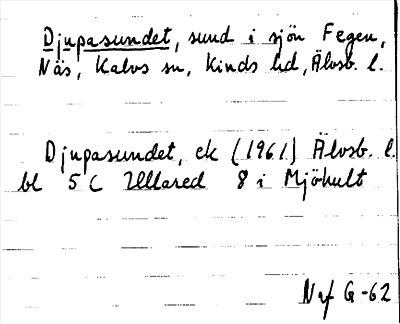 Djupasundet, sund i sjön Fegen,
Näs, Kalvs sn, Kinds hd, Älvsb. l.
Djupasundet, ek (1961) Älvsb. l.
bl 5 C Ullared 8 i Mjöhult
NAf G-62